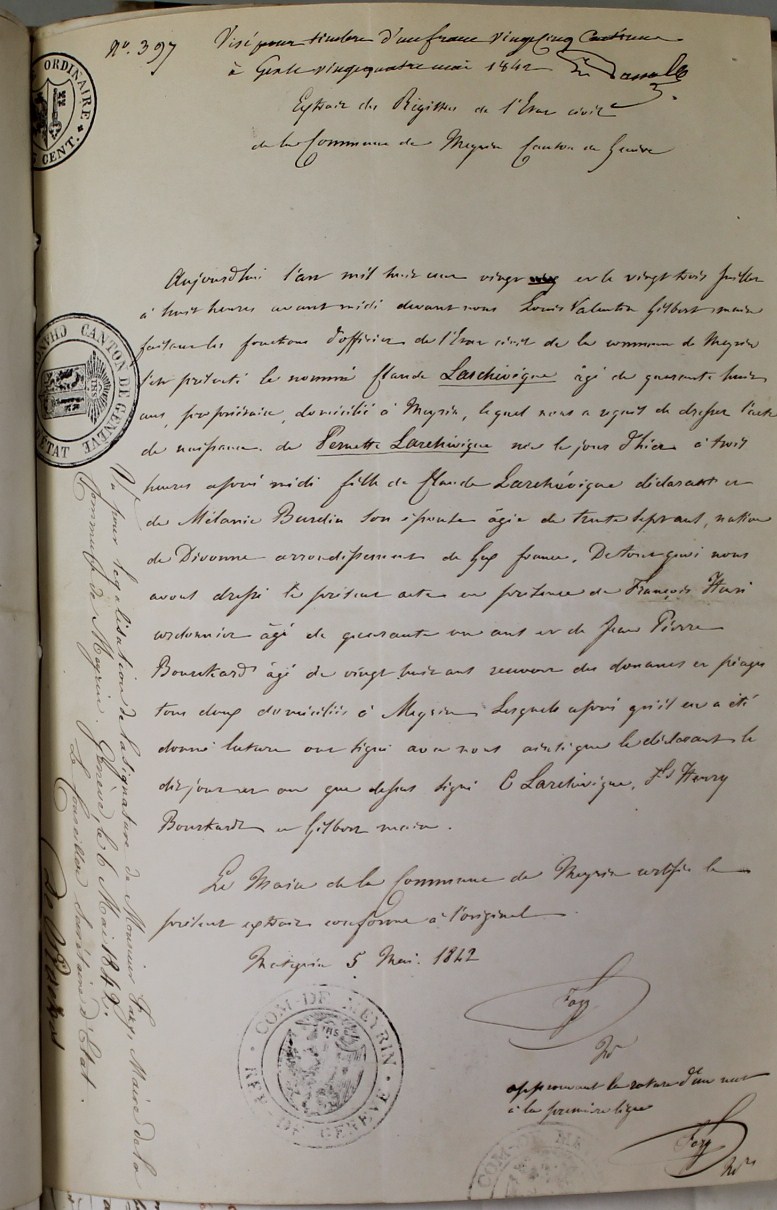 N.º 397
Visé pour timbre d'un franc vingt cinq centimes
à Gex le vingt quatre mai 1842
Extrait des Registres de l'Etat civil
de la Commune de Meyrin Canton de Genève
ORDINAIRE.
CENT.
CANTON DE GENEVE
CHANC
ETAT
Aujourdhui l'an mil huit cent vingt et le vingt trois Juillet
à huit heures avant midi devant nous Louis Valentin Gilbert maire
faisant les fonctions d'officier de l'Etat civil de la commune de Meyrin
s'est présenté le nommé Claude Larchevêque âgé de quarante huit
ans, propriétaire, domicilié à Meyrin, lequel nous a requis de dresser l'acte
de naissance de Pernette Larchevêque née le jour d'hier à trois
heures après midi fille de Claude Larchevêque déclarant et
de Mélanie Burdin son épouse âgée de trente sept ans, native
de Divonne arrondissement de Gex france. De tout quoi nous
avons dressé le présent acte en présence de François Henri
cordonnier âgé de quarante un ans et de Jean Pierre
Bourkardt âgé de vingt huit ans receveur des douanes et péages
tous deux domiciliés à Meyrin Lesquels après qu'il en a été
donné lecture ont signé avec nous ainsi que le déclarant le
dit jour et an que dessus signé C Larchevêque, Fs Henry
Bourkardt et Gilbert maire.
Le Maire de la Commune de Meyrin certifie le
présent extrait conforme à l'original
Meyrin 5 Mai 1842
COM. DE MEYRIN
REP. DE GENEVE
approuvant la rature d'un mot
à la première ligne
COM. DE ME
Vu pour légalisation de la signature de Monsieur Maire de la
Commune de Meyrin. Genève, le 6 Mai 1842.
Le Conseiller Secrétaire d'Etat.